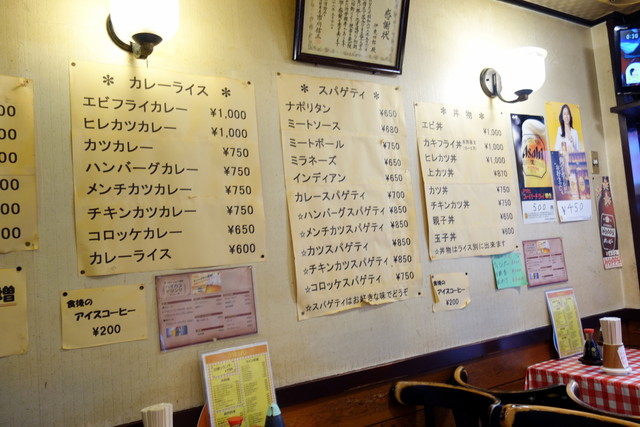 感謝状
00
00
00
00
増
✻ カレーライス ✻
エビフライカレー ¥1,000
ヒレカツカレー ¥1,000
カツカレー ¥750
ハンバーグカレー ¥750
メンチカツカレー ¥750
チキンカツカレー ¥750
コロッケカレー ¥650
カレーライス ¥600
食後の
アイスコーヒー
¥200
✻ スパゲティ ✻
ナポリタン ¥650
ミートソース ¥680
ミートボール ¥750
ミラネーズ ¥650
インディアン ¥650
カレースパゲティ ¥700
☆ハンバーグスパゲティ ¥850
☆メンチカツスパゲティ ¥850
☆カツスパゲティ ¥850
☆チキンカツスパゲティ ¥850
☆コロッケスパゲティ ¥750
☆スパゲティはお好きな味でどうぞ
✻ 丼物 ✻
エビ丼 ¥1,000
カキフライ丼 ¥1,000
ヒレカツ丼 ¥1,000
上カツ丼 ¥870
カツ丼 ¥750
チキンカツ丼 ¥750
親子丼 ¥650
玉子丼 ¥650
☆丼物はライス別に出来ます
食後の
アイスコーヒー
¥200
Asahi
500
¥450
0:30